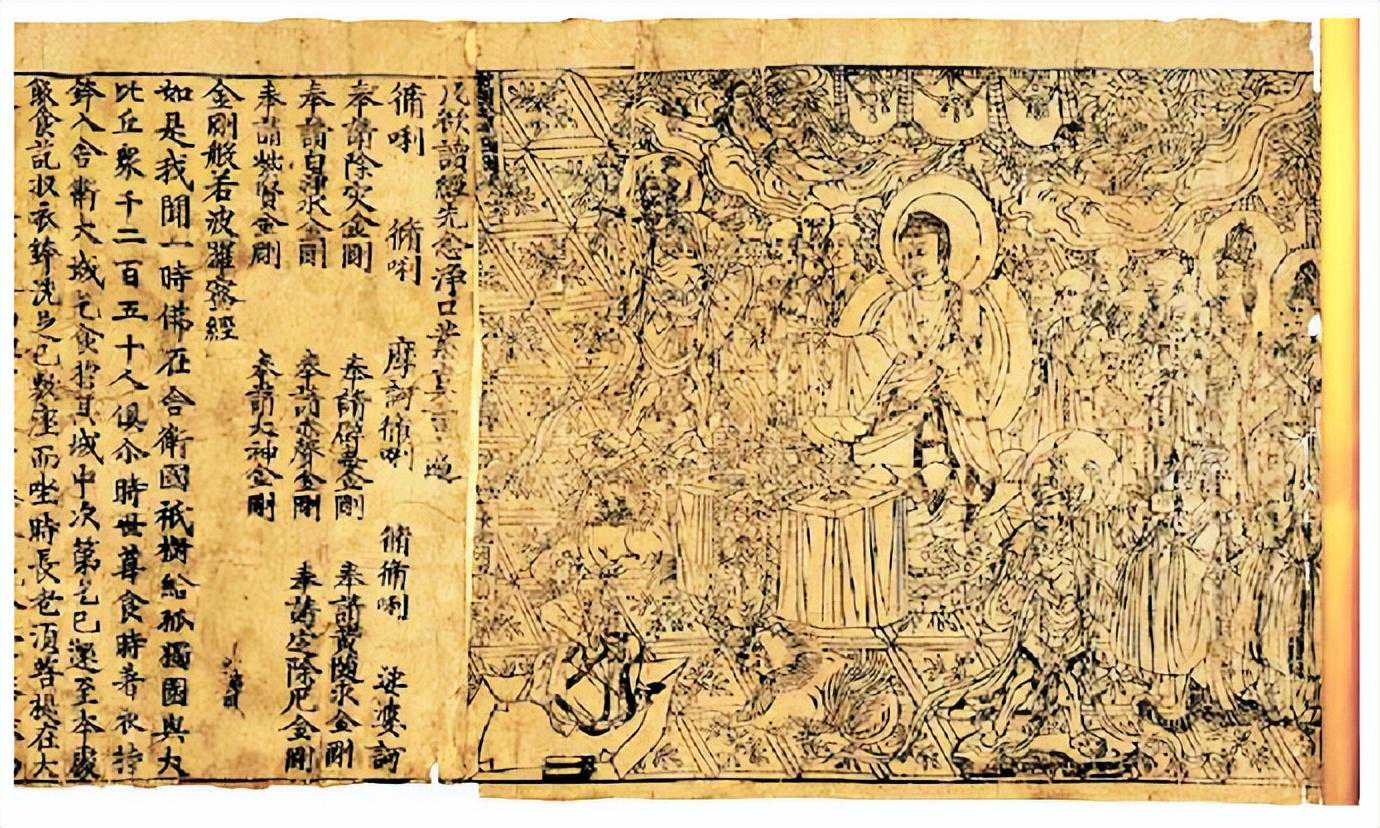 凡欲讀經先念淨口業真言一遍
脩唎 脩唎 摩訶脩唎 脩脩唎 娑婆訶
奉請除灾金剛 奉請辟毒金剛 奉請黃隨求金剛
奉請白淨水金剛 奉請赤聲金剛 奉請定除厄金剛
奉請紫賢金剛 奉請大神金剛
金剛般若波羅蜜經
如是我聞一時佛在舍衛國祇樹給孤獨園與大
比丘衆千二百五十人俱尒時世尊食時著衣持
鉢入舍衛大城乞食於其城中次第乞已還至本處
飯食訖収衣鉢洗足已敷座而坐時長老須菩提在大